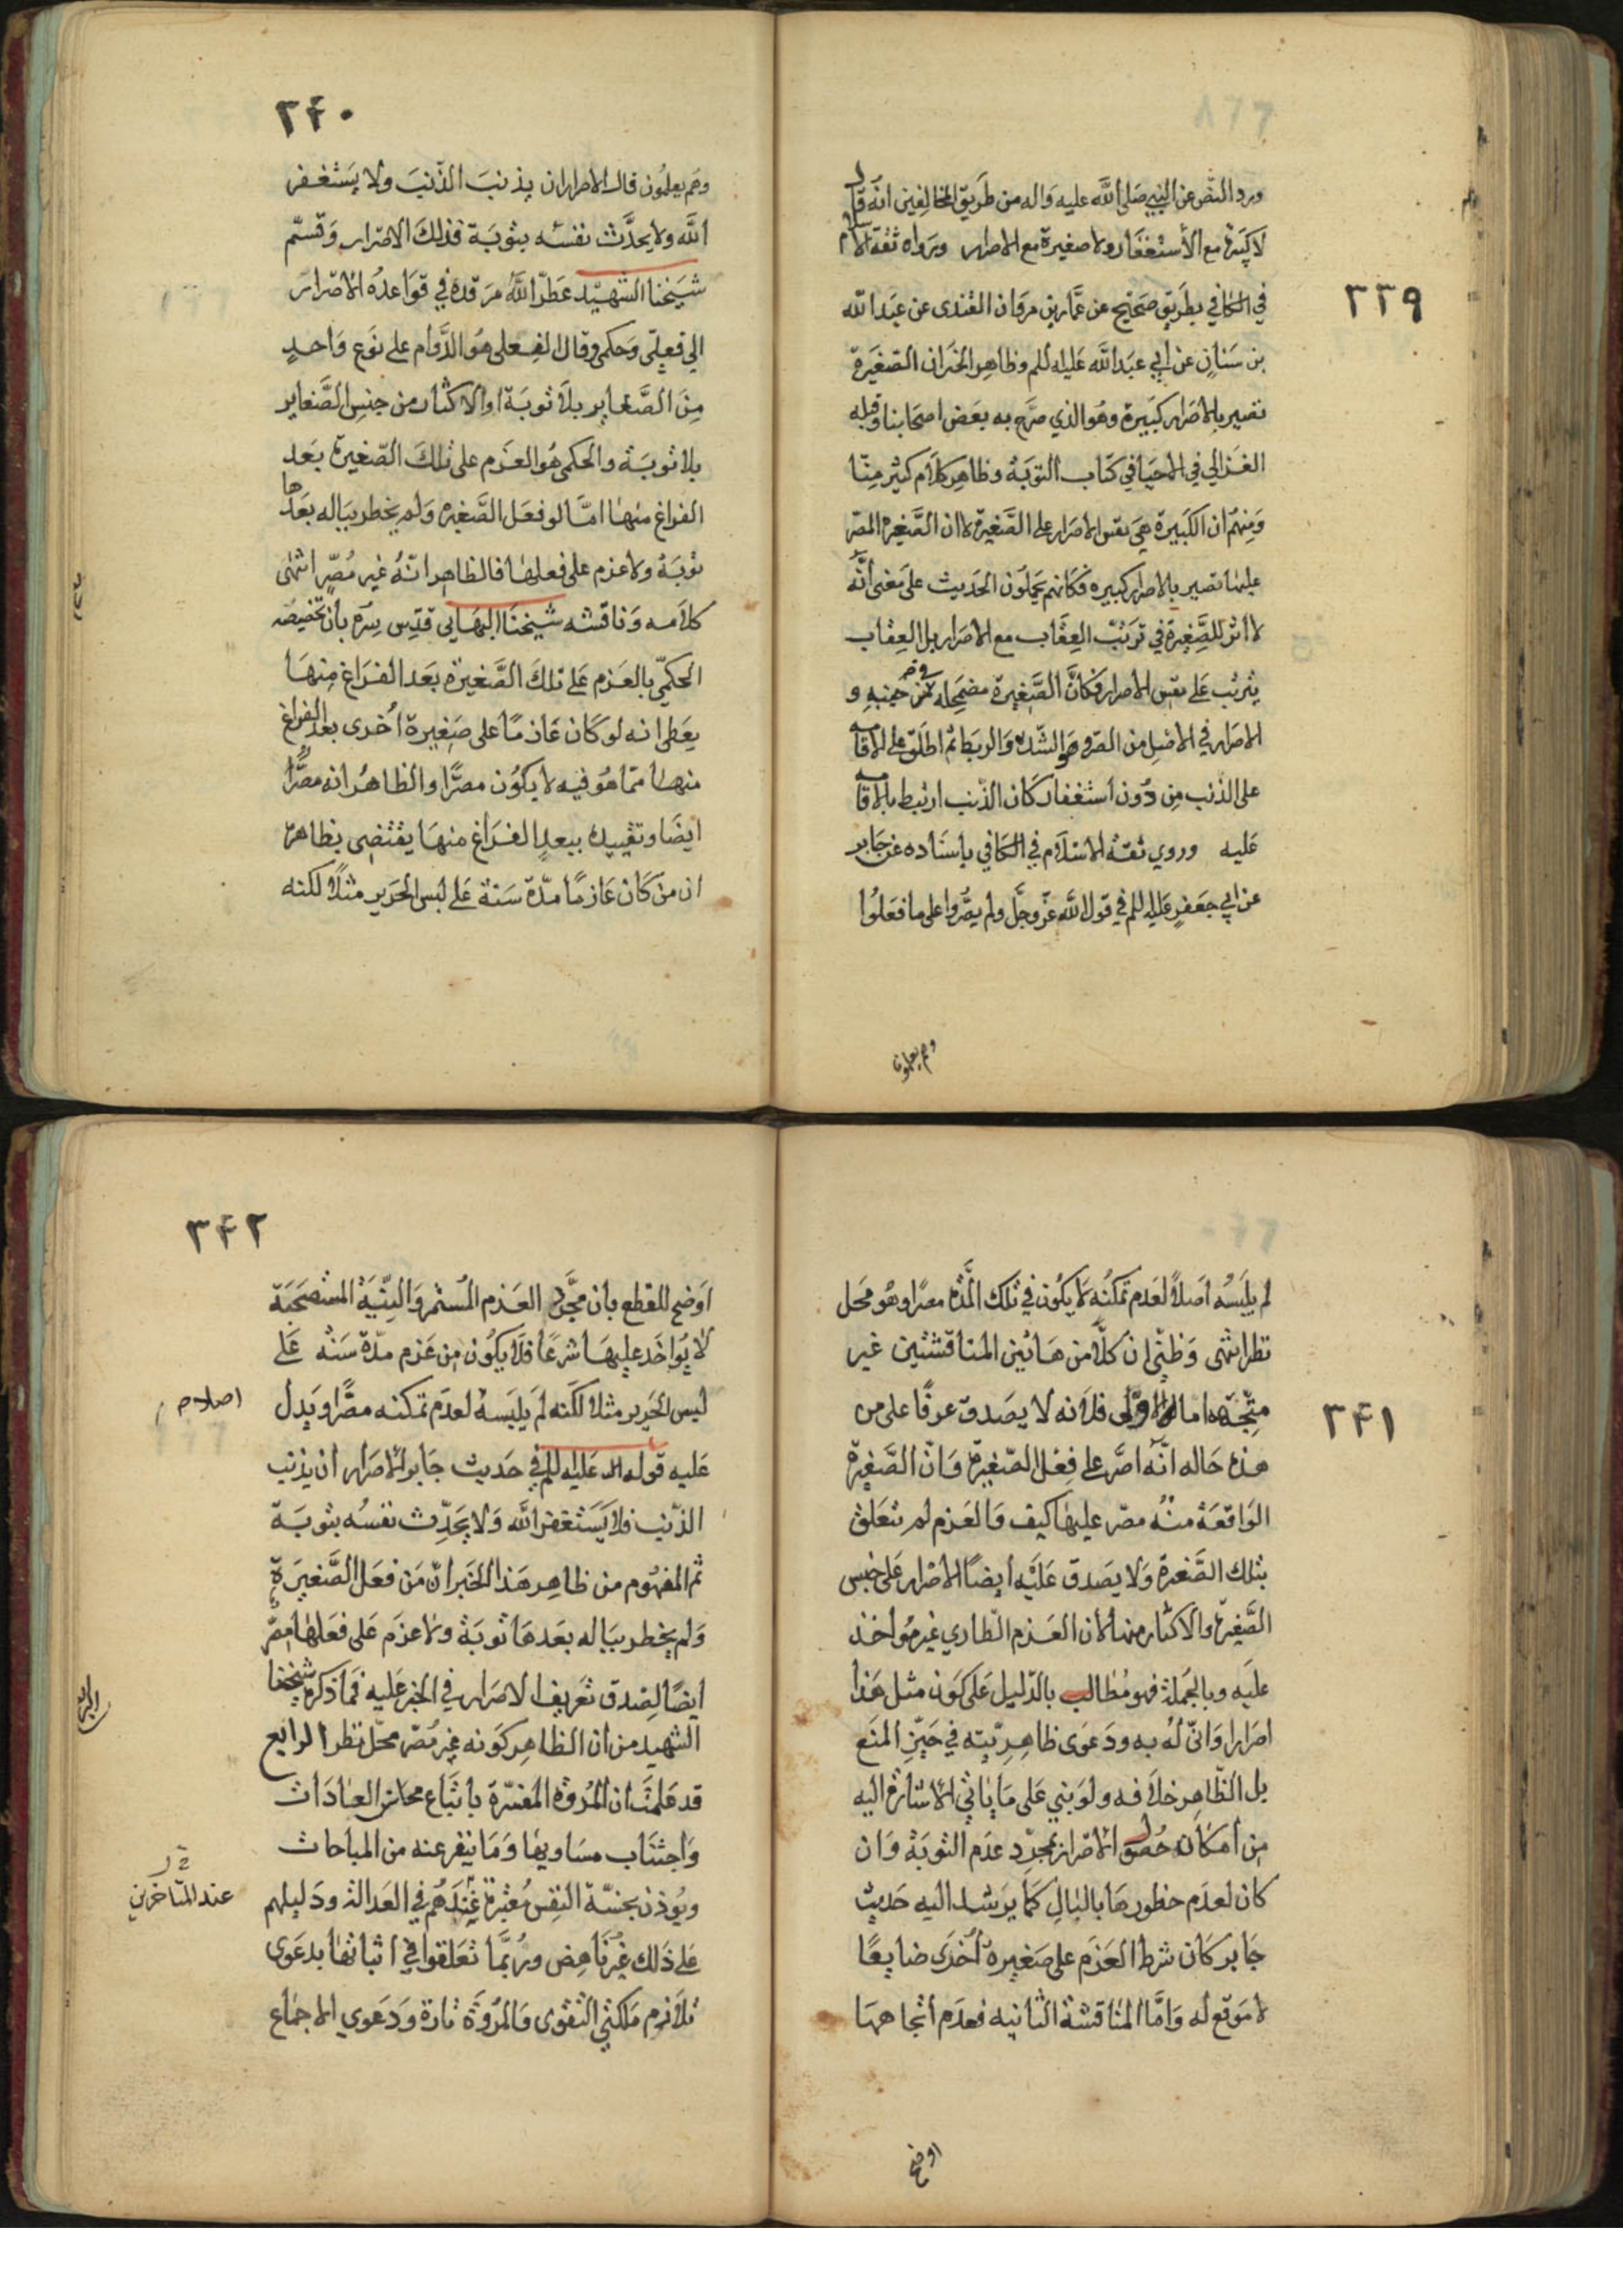 ٣٣٩
ورد النص عن النبي صلى الله عليه واله من طريق المخالفين انه قال
لا كبيرة مع الاستغفار ولا صغيرة مع الاصرار ورواه ثقة الاسلام
في الكافي بطريق صحيح عن عمار بن مروان القندي عن عبد الله
بن سنان عن ابي عبد الله عليه السلم وظاهر الخبر ان الصغيرة
تصير بالاصرار كبيرة وهو الذي صرح به بعض اصحابنا وقبله
الغزالي في الاحيا في كتاب التوبة وظاهر كلام كثير منّا
ومنهم ان الكبيرة هي نفس الاصرار على الصغيرة لا ان الصغيرة المصر
عليها تصير بالاصرار كبيرة فكانهم يحملون الحديث على معنى أنه
لا اثر للصغيرة في ترتب العقاب مع الاصرار بل العقاب
يترتب على نفس الاصرار فكأن الصغيرة مضمحلة في جنبه و
الاصرار في الاصل من الصر وهو الشد والربط ثم اطلق على الاقامة
على الذنب من دون استغفار كان الذنب ارتبط بالاقامة
عليه وروي ثقة الاسلام في الكافي باسناده عن جابر
عن ابي جعفر عليه السلم في قول الله عز وجل ولم يصروا على ما فعلوا
وهم يعلمون
٣٤٠
وهم يعلمون قال الاصرار ان يذنب الذنب ولا يستغفر
الله ولا يحدّث نفسه بتوبة فذلك الاصرار وقسّم
شيخنا الشهيد عطر الله مرقده في قواعده الاصرار
الى فعلي وحكمي وقال الفعلي هو الدوام على نوع واحد
من الصغاير بلا توبة او الاكثار من جنس الصغاير
بلا توبة والحكمي هو العزم على تلك الصغيرة بعد
الفراغ منها امّا لو فعل الصغيره ولم يخطر بباله بعدها
توبة ولا عزم على فعلها فالظاهر انّه غير مُصرّ انتهى
كلامه وناقشه شيخنا البهايي قدس سره بان تخصيصه
الحكمي بالعزم على تلك الصغيرة بعد الفراغ منها
يعطى انه لو كان عازمًا على صغيرة أخرى بعد الفراغ
منها مما هو فيه لا يكون مصرًّا والظاهر انه مصرًّا
ايضًا وتقييده ببعد الفراغ منها يقتضي بظاهره
ان من كان عازمًا مدّة سنة على لبس الحرير مثلًا لكنه
٣٤١
لم يلبسه اصلًا لعدم تمكنه لا يكون في تلك المدّة مصرًا وهو محل
نظر انتهى وظنّي ان كلًّا من هاتين المناقشتين غير
متّجهة اما الاولى فلانه لا يصدق عرفًا على من
هذه حاله انّه اصرّ على فعل الصغيرة وان الصغيرة
الواقعة منه مصر عليها كيف والعزم لم تتعلق
بتلك الصغيرة ولا يصدق عليه أيضًا الاصرار على جنس
الصغيرة والاكثار منها لان العزم الطاري غير مُواخذ
عليه وبالجملة فهو مُطالب بالدّليل على كون مثل هذا
اصرارا وانّى له به ودعوى ظاهريّته في حيّز المنع
بل الظاهر خلافه ولو بني على ما ياتي الاشارة اليه
من امكان حصول الاصرار بمجرّد عدم التوبة وان
كان لعدم خطورها بالبال كما يرشد اليه حديث
جابر كان شرط العزم على صغيرة أخرى ضايعًا
لا موقع له وامّا المناقشة الثانية فعدم اتجاهها
اوضح
٣٤٢
اوضح للقطع بان مجرّد العزم المُستمر والنيّة المستصحبة
لا يُواخذ عليها شرعًا فلا يكون من عزم مدّة سنة على
لبس الحرير مثلا لكنه لم يلبسه لعدم تمكنه مصرًّا ويدل
اصلا
عليه قوله عليه السلم في حديث جابر الاصرار ان يذنب
الذنب فلا يستغفر الله ولا يحدّث نفسه بتوبة
ثم المفهوم من ظاهر هذا الخبر انّ من فعل الصغيرة
ولم يخطر بباله بعدها توبة ولا عزم على فعلها مصرّ
ايضًا لصدق تعريف الاصرار في الخبر عليه فما ذكره شيخنا
الشهيد من ان الظاهر كونه غير مُصرّ محلّ نظر الرابع
قد علمت ان المروّة المفسّرة باتّباع محاسن العادات
واجتناب مساويها وما ينفر عنه من المباحات
ويُوذن بخسّة النفس مُعتبرة عندهم في العدالة ودليلهم
عند المتاخرين
على ذلك غير ناهض وربّما تعلقوا في اثباتها بدعوى
تلازم ملكتي التقوى والمروّة تارة ودعوي الاجماع